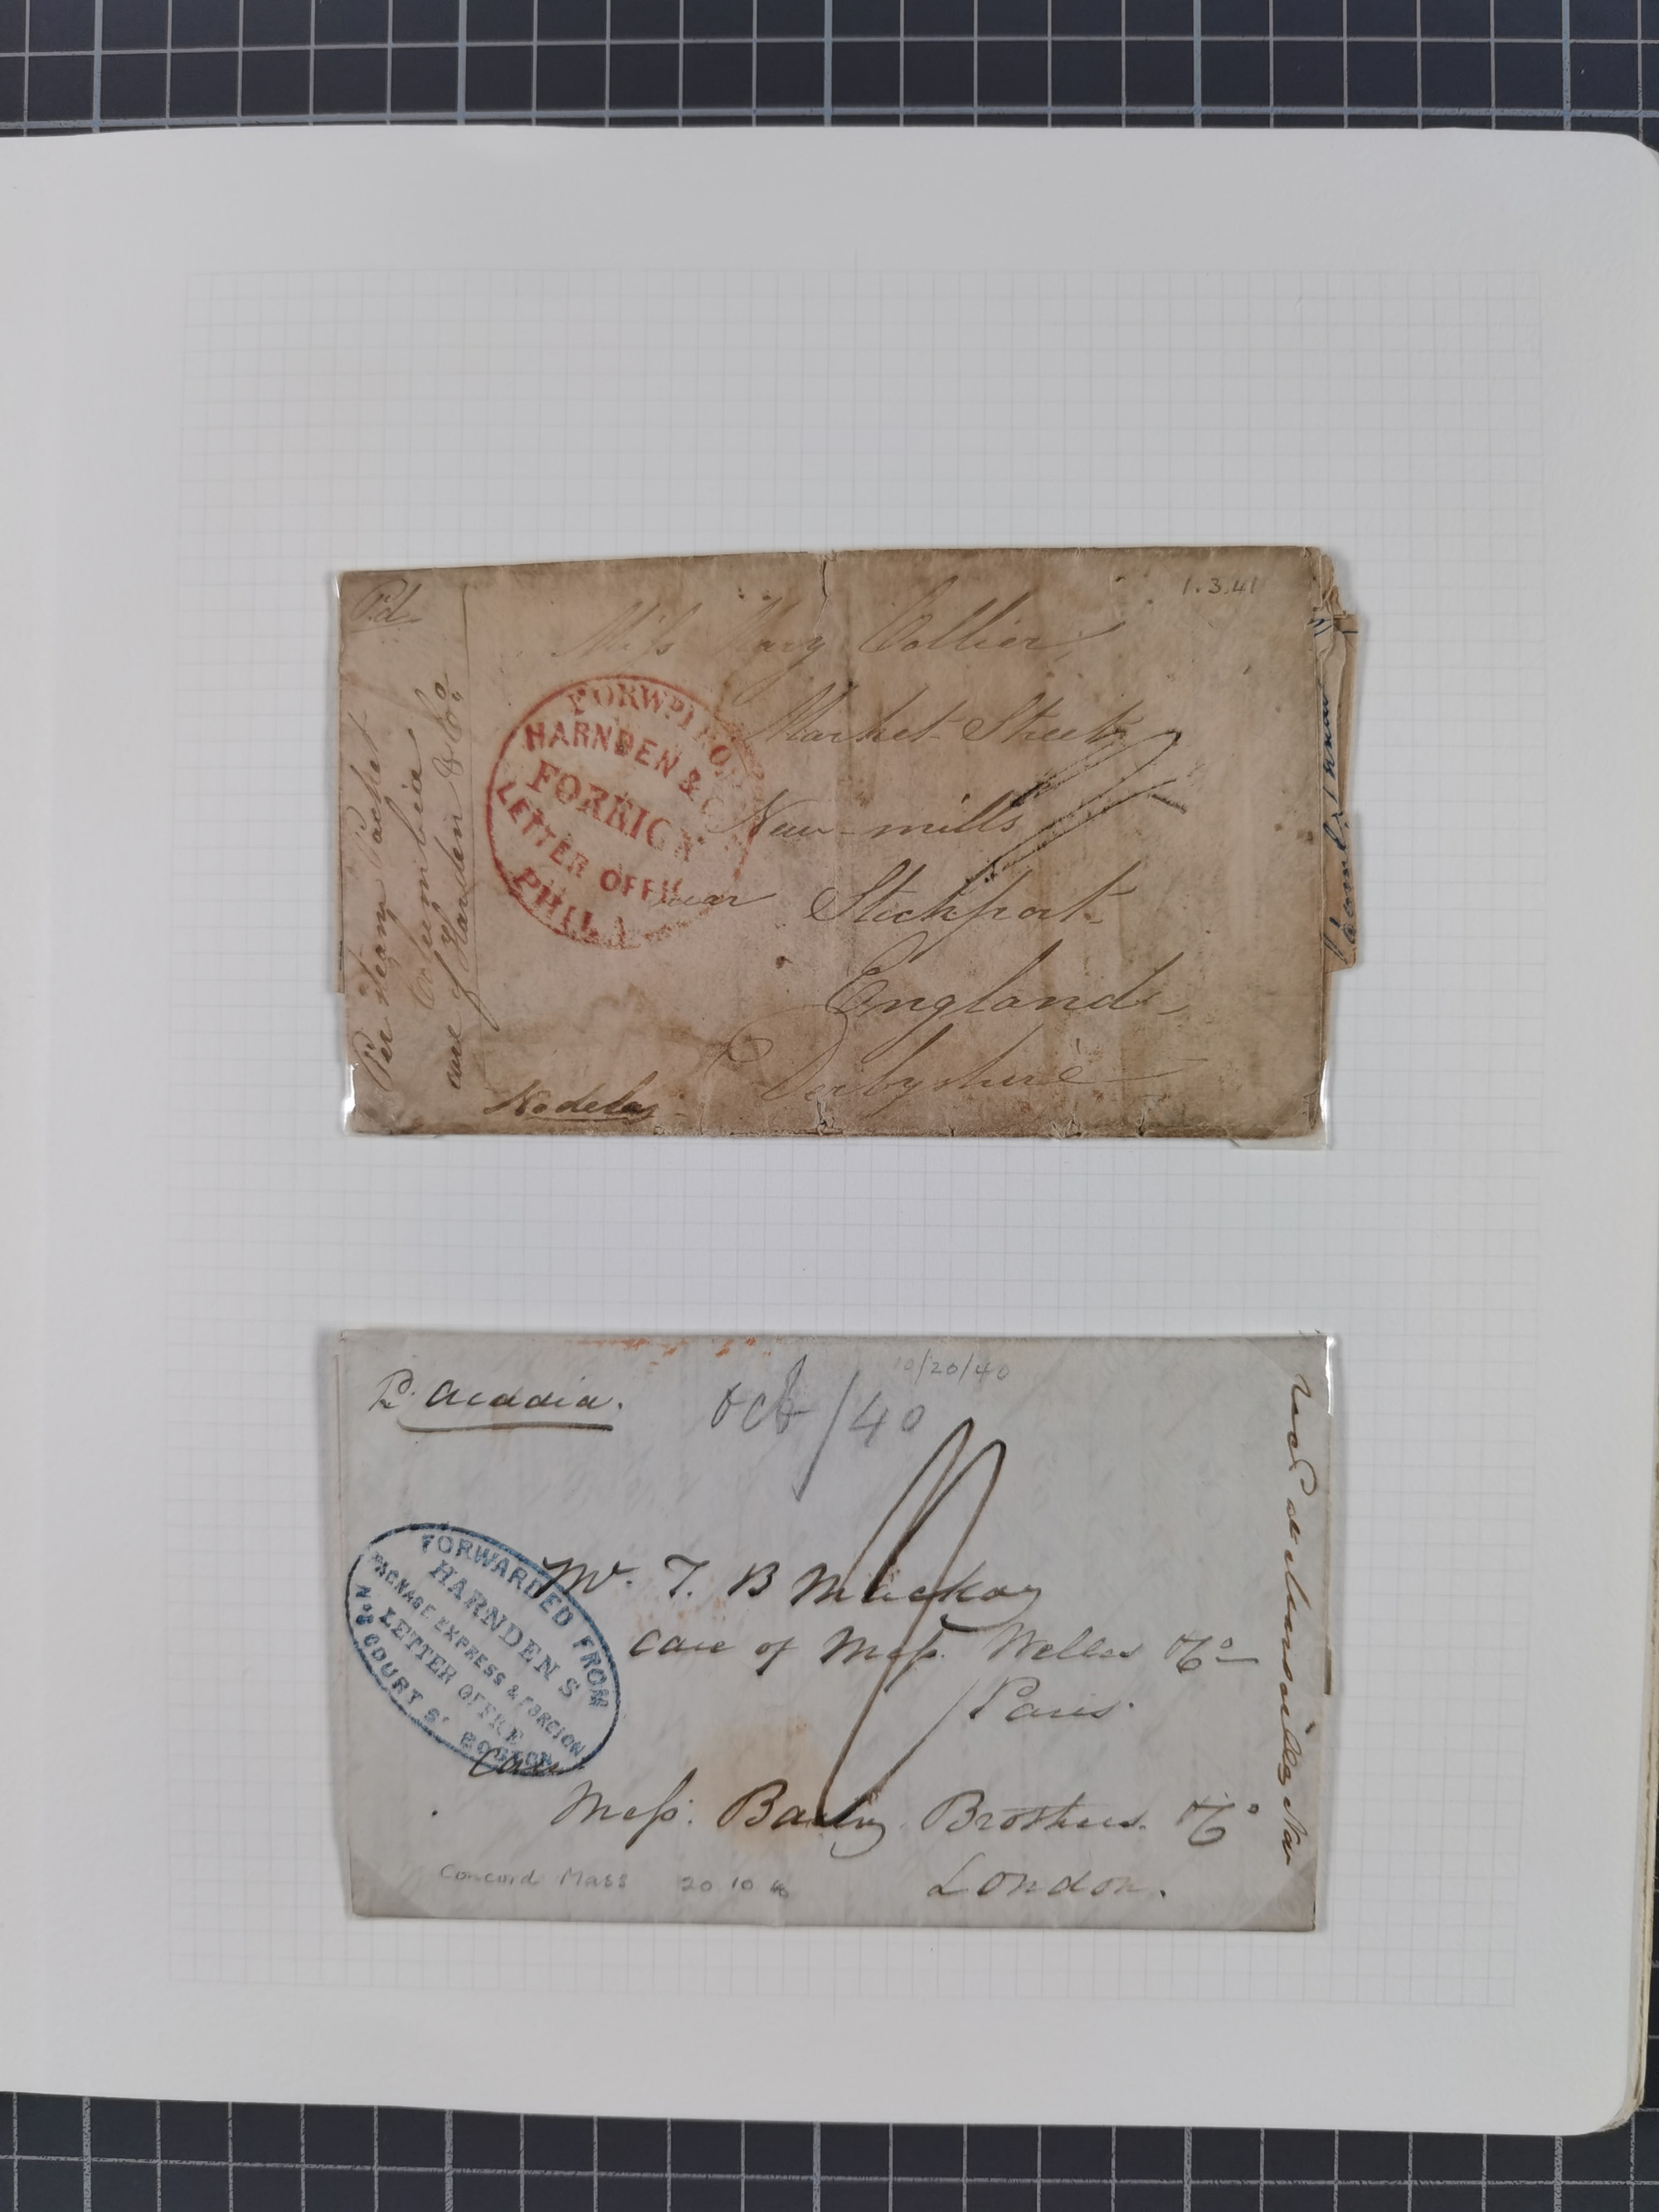 Pd
1.3.41
Miss Mary Collier,
Market Street
New-mills
near Stockport
England
Derbyshire
Per steam Packet
Columbia
care of Harnden & Co
No delay
FORWD FROM
HARNDEN & CO
FOREIGN
LETTER OFFICE
PHILA
10/20/40
Pr. Acadia.
Oct/40
FORWARDED FROM
HARNDEN'S
PACKAGE EXPRESS & FOREIGN
LETTER OFFICE
No 8 COURT St BOSTON
Mr. T. B Mackay
Care of Mess. Welles & Co
Paris.
Care
Mess. Baring Brothers & Co
London.
Concord Mass 20 10 40